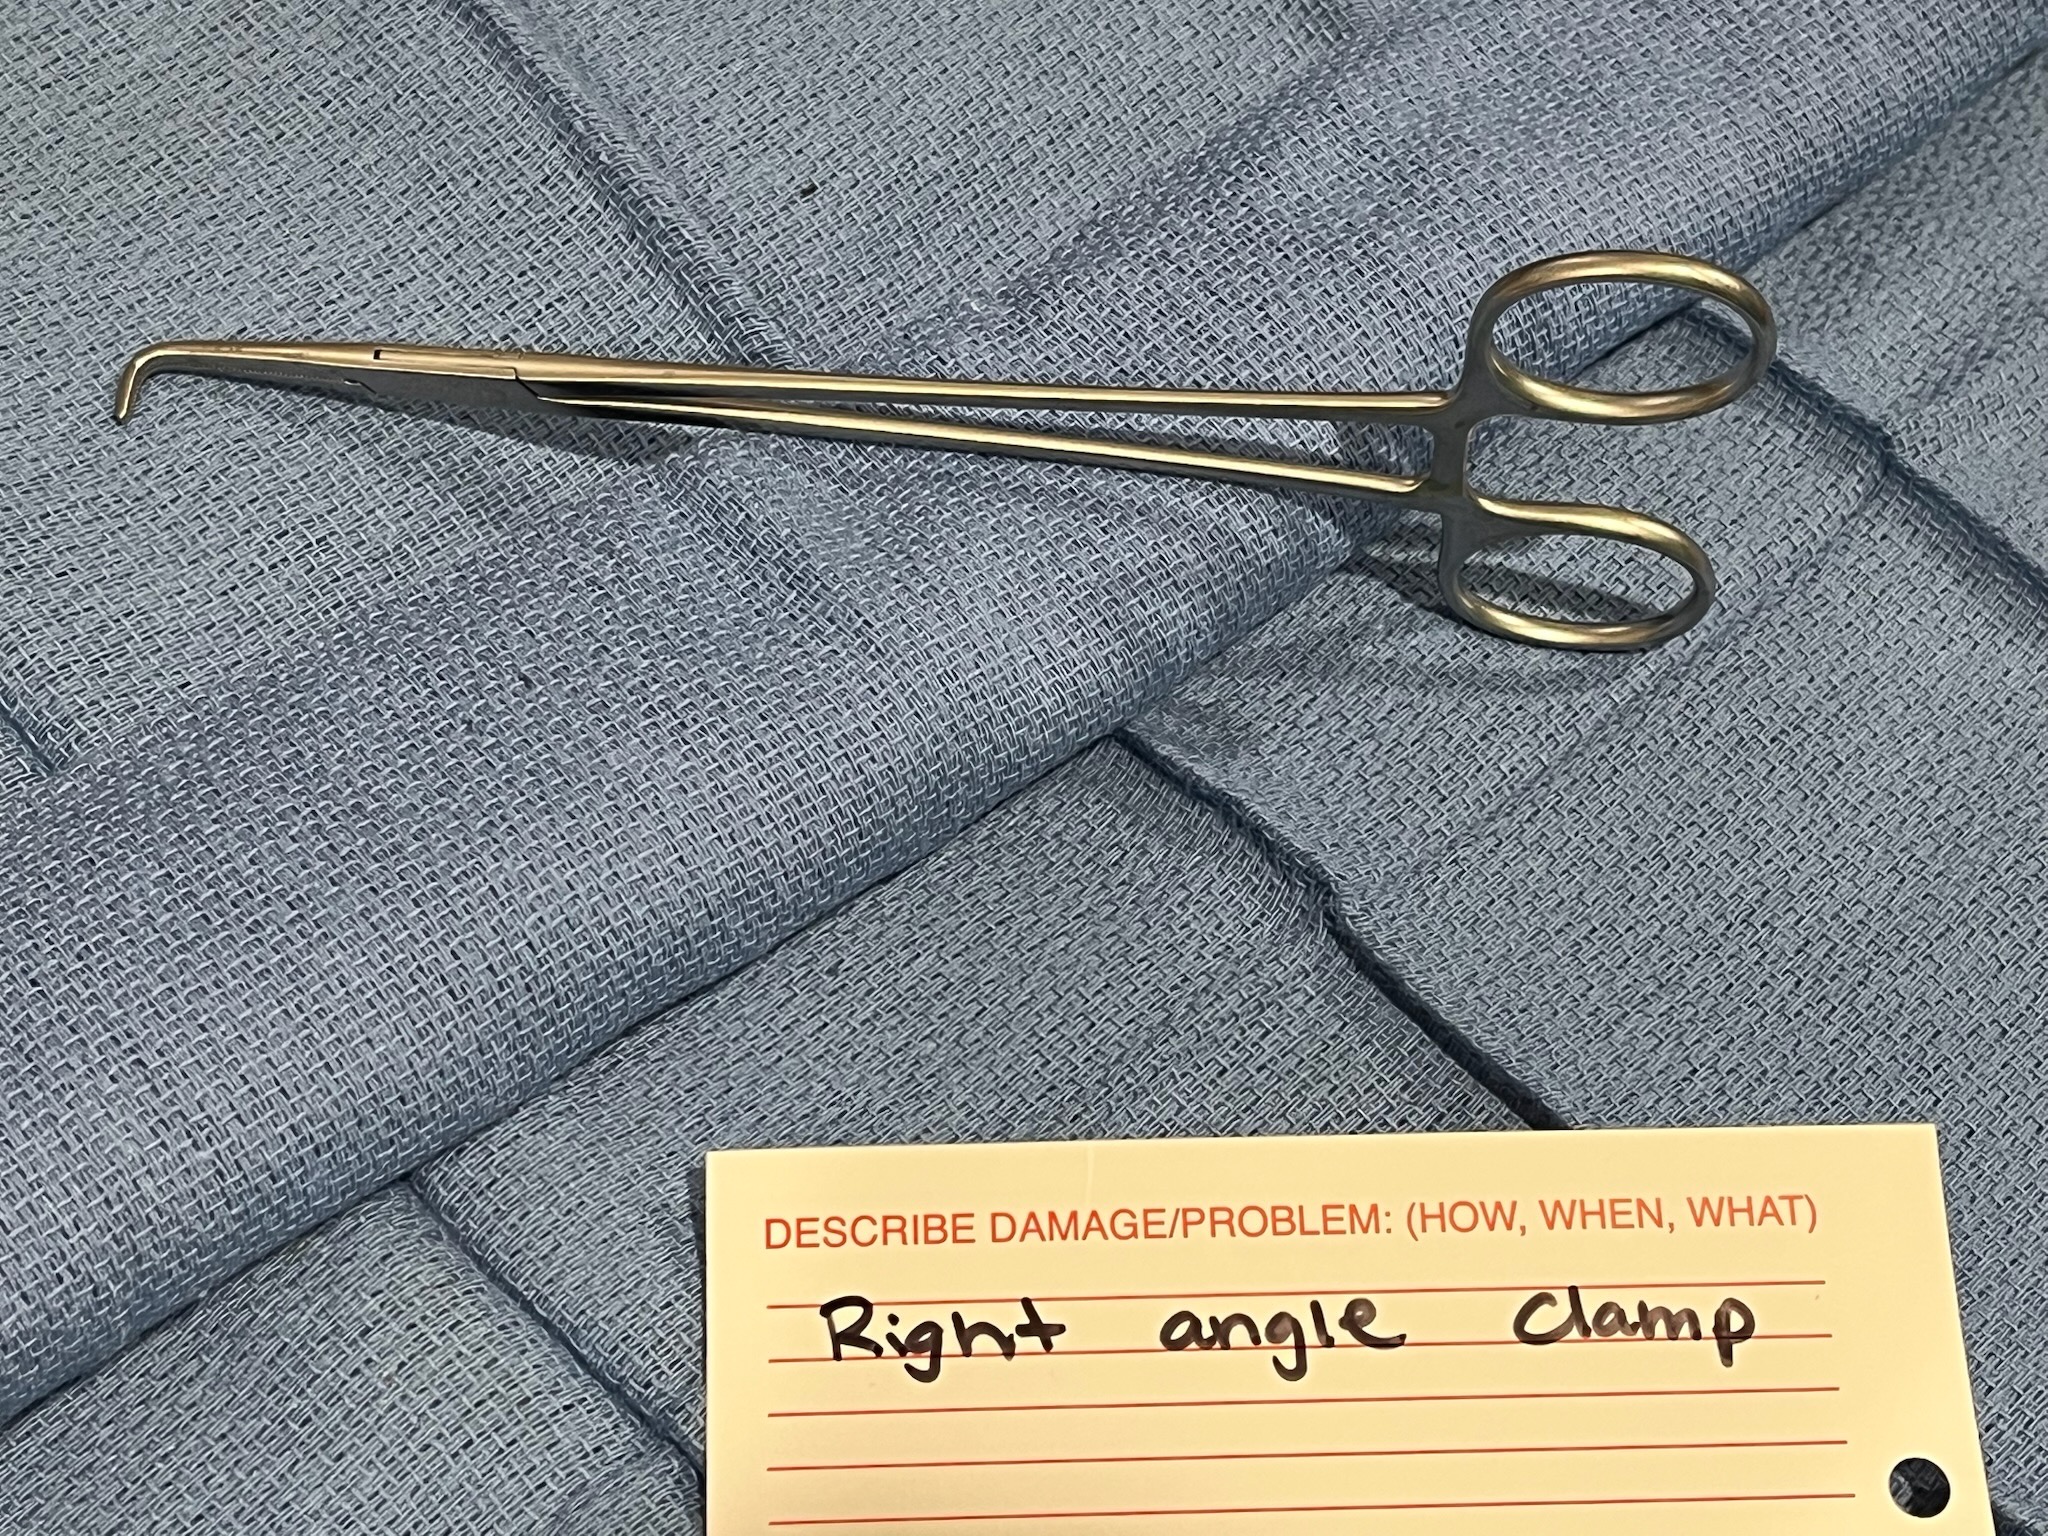 DESCRIBE DAMAGE/PROBLEM: (HOW, WHEN, WHAT)
Right angle clamp